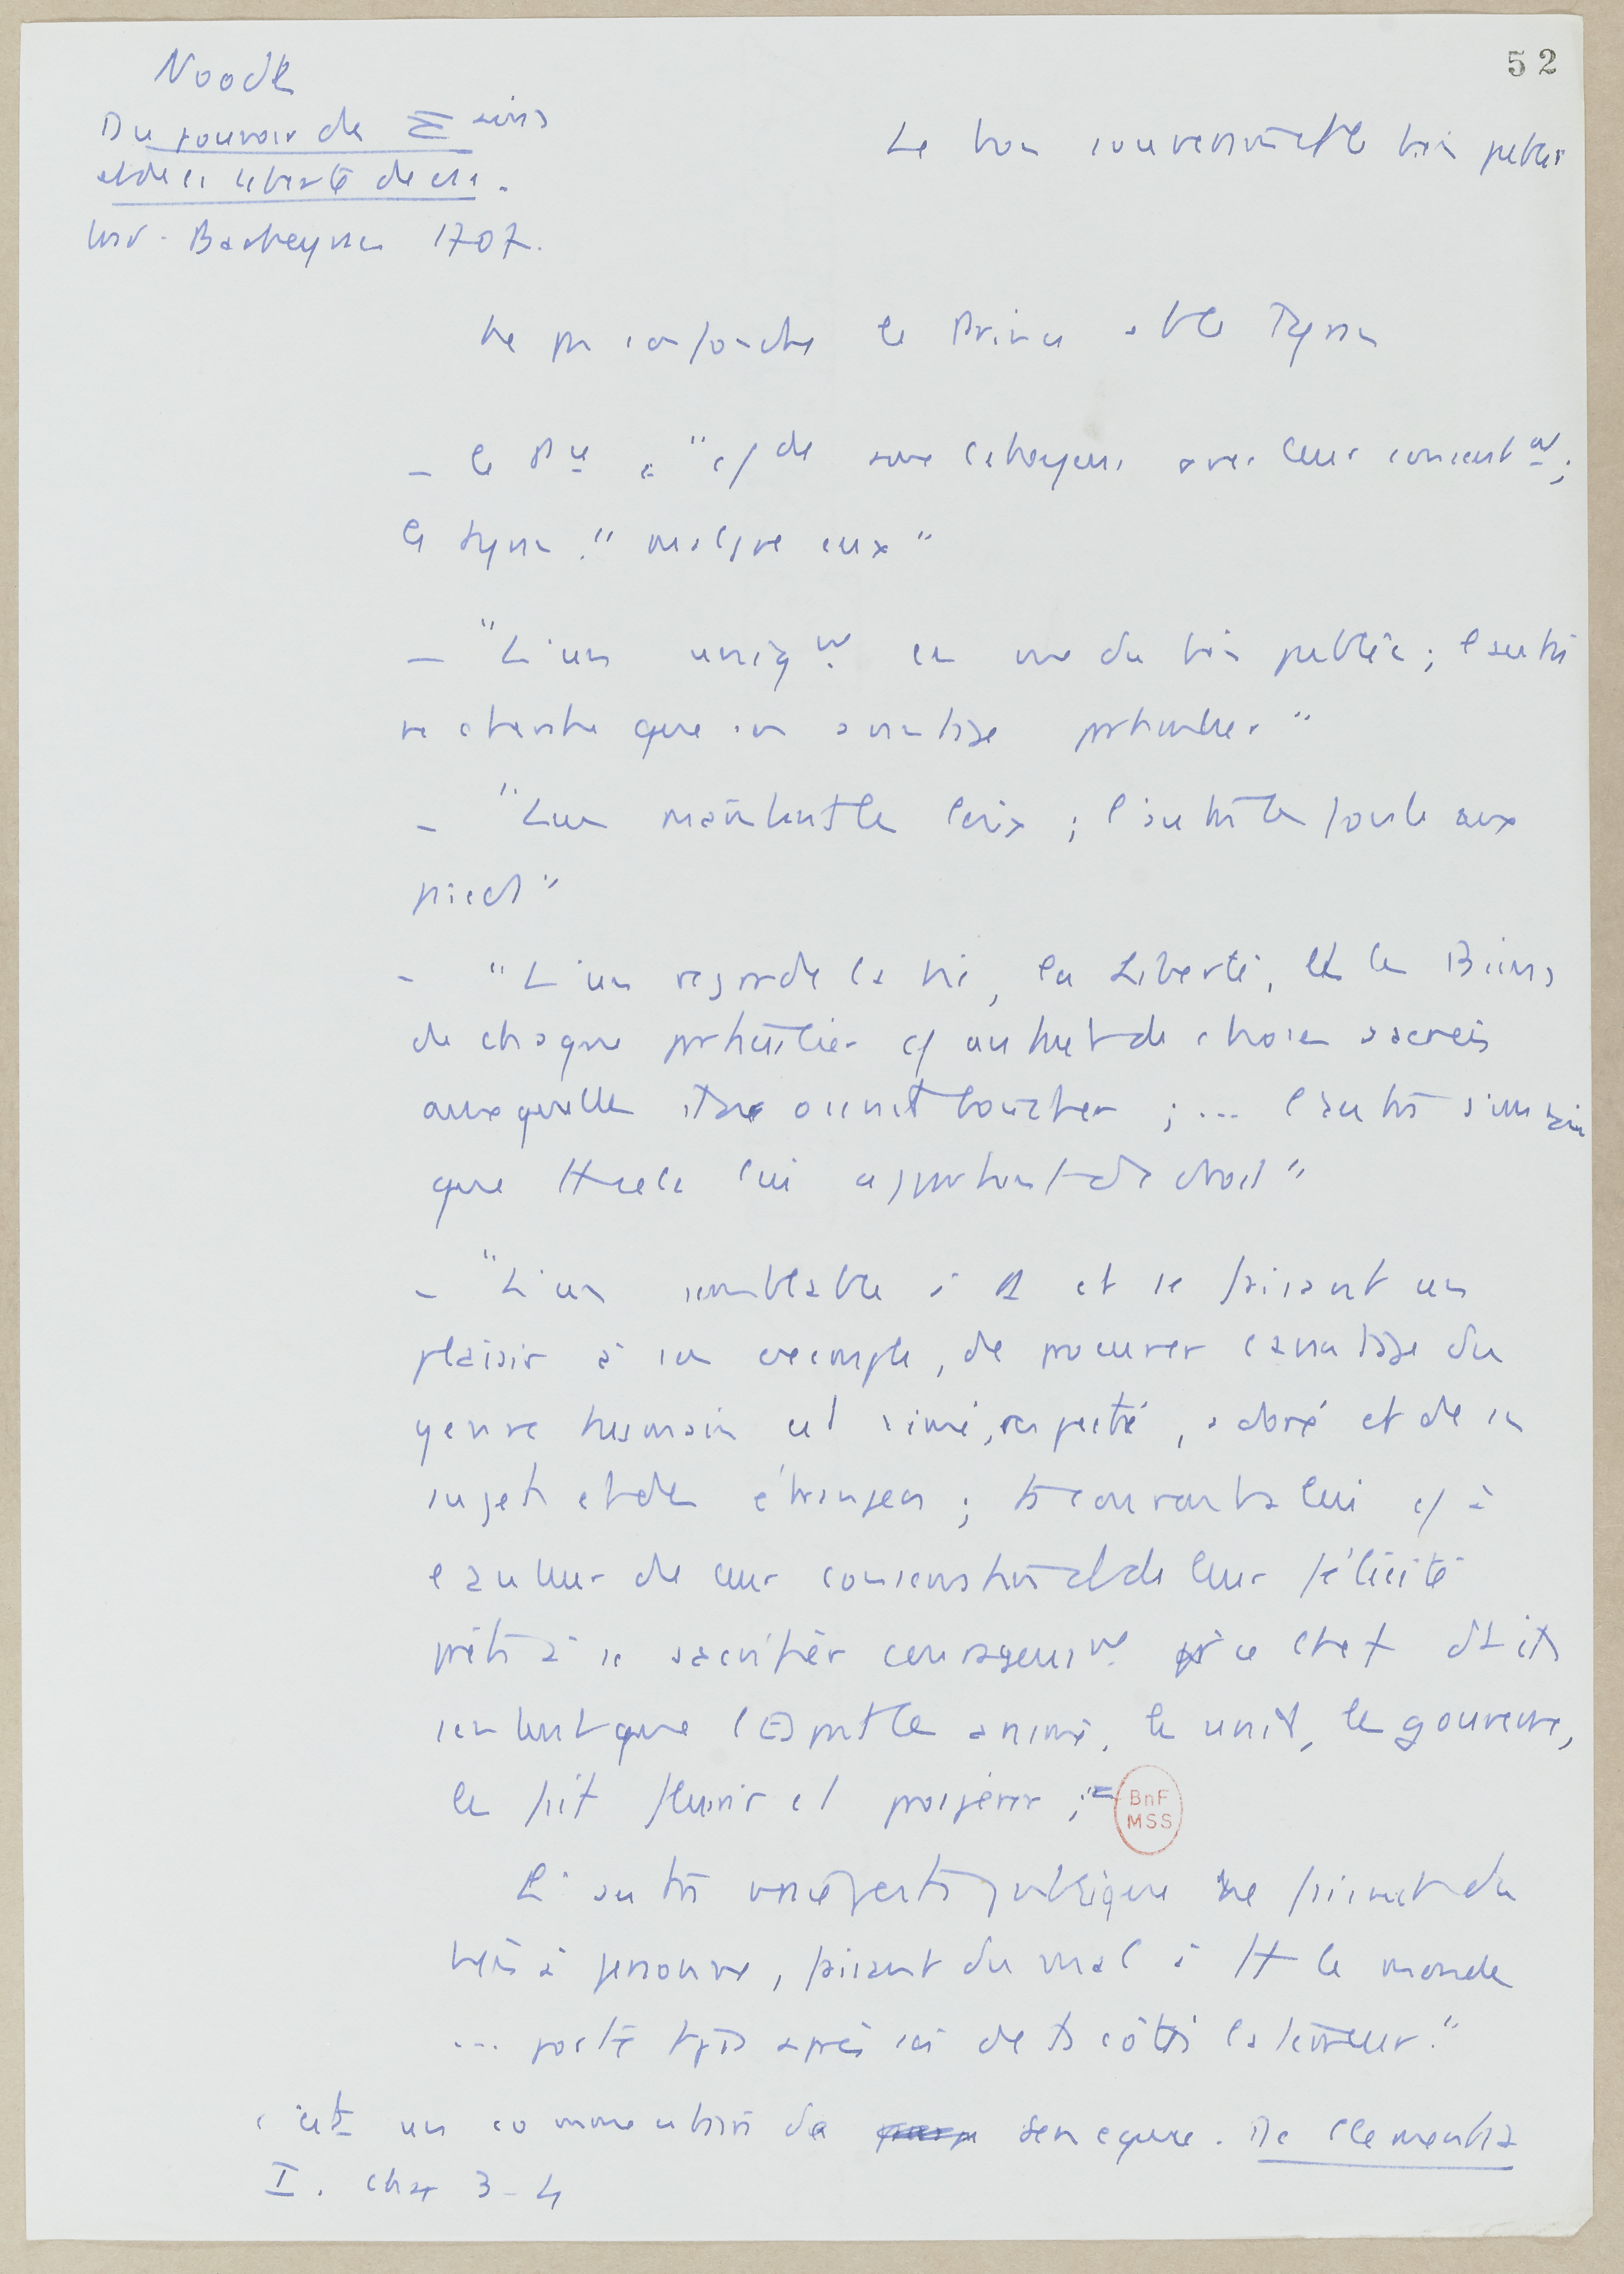 52
Noodt
Du pouvoir des Σains
et de la liberté de csc.
trad. Barbeyrac 1707.
Le bon souverain et le bien public
Ne pas confondre le Prince et le Tyran
– le Pce a "cf de vrais citoyens avec leur consentnt;
le tyran "malgré eux"
– "L'un uniqnt en vue du bien public; l'autre
ne cherche que son avantage particulier"
– "L'un maintient les loix; l'autre les foule aux
pieds"
– "L'un regarde la vie, la Liberté, et les Biens
de chaque particulier cf autant de choses sacrées
auxquelles il ne ... toucher; ... l'autre s'imagine
que tt cela lui appartient de droit"
– "L'un semblable à D et se faisant un
plaisir à son exemple, de procurer l'avantage du
genre humain est aimé, respecté, adoré et de ses
sujets et des étrangers; ts courant à lui cf à
l'auteur de leur conservation et de leur félicité
prêts à se sacrifier courageusnt pr ce chef dt ils
sentent que l'Esprit les anime, les unit, les gouverne,
les fait fleurir et prospérer;"
BnF
MSS
L'autre vraie peste publique ne faisant du
bien à personne, faisant du mal à tt le monde
... porte tjrs après soi de ts côtés la terreur."
c'est un commentaire de Senèque. De Clementia
I. chap 3-4